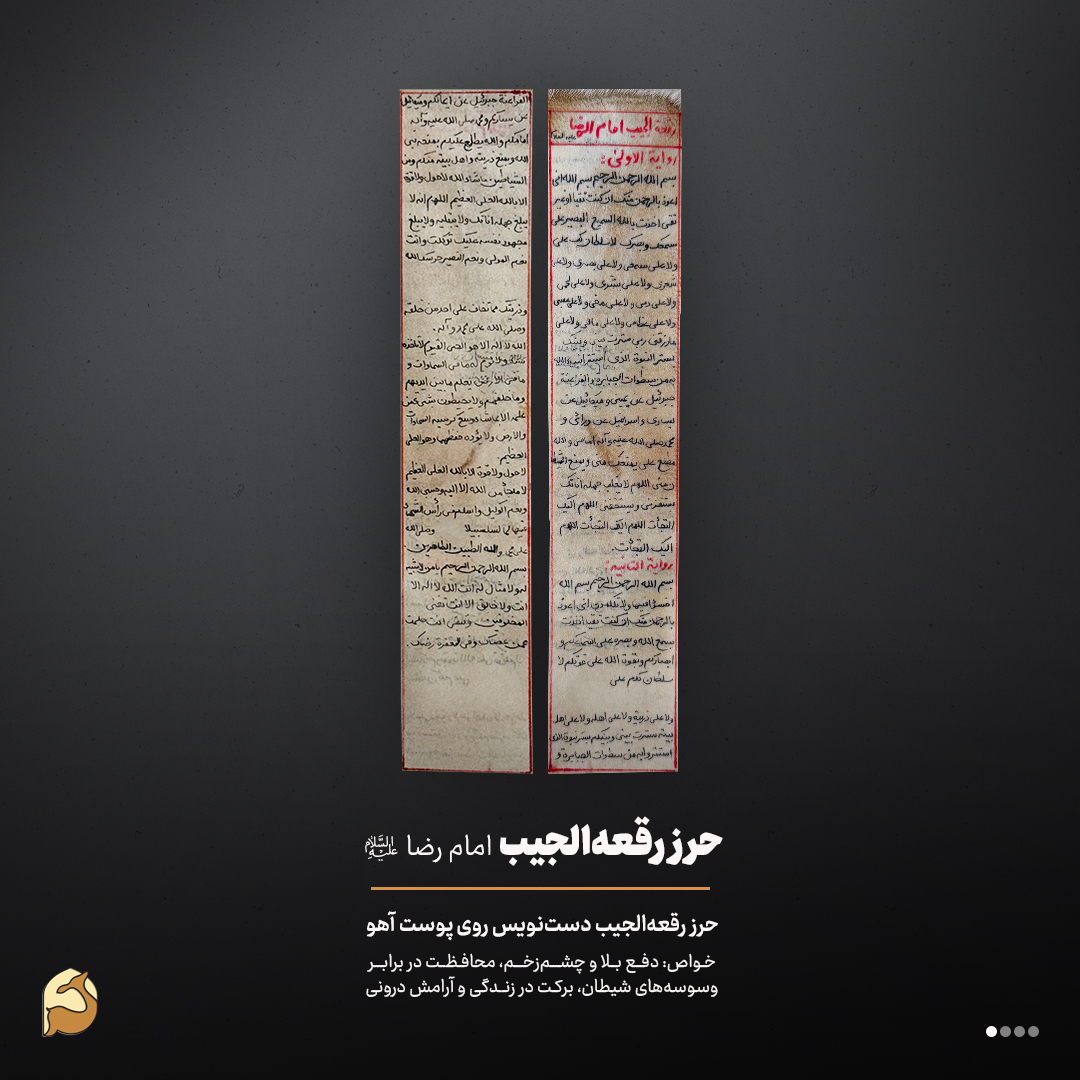 رقعة الجيب امام الرضا عليه السلام
رواية الاولى:
بسم الله الرحمن الرحيم بسم الله انى
اعوذ بالرحمن منك ان كنت تقيا او غير
تقى اخذت بالله السميع البصير على
سمعك و بصرك لا سلطان لك على
ولا على سمعى ولا على بصرى ولا على
شعرى ولا على بشرى ولا على لحمى
ولا على دمى ولا على مخى ولا على عصبى
ولا على عظامى ولا على مالى ولا على
ما رزقنى ربى سترت بينى و بينك
بستر النبوة الذى استتر انبياء الله
به من سطوات الجبابرة و الفراعنة
جبرئيل عن يمينى و ميكائيل عن
يسارى و اسرافيل عن ورائى و
محمد صلى الله عليه و آله امامى والله
مطلع على يمنعك منى و يمنع الشيطان
منى اللهم لا يغلب جهله اناتك
ان يستفزنى و يستخفنى اللهم اليك
التجأت اللهم اليك التجأت اللهم
اليك التجأت.
رواية الثانية:
بسم الله الرحمن الرحيم بسم الله
اخسئوا فيها ولا تكلمون انى اعوذ
بالرحمن منك ان كنت تقيا اخذت
بسمع الله و بصره على اسماعكم و
ابصاركم و بقوة الله على قوتكم لا
سلطان لكم على
ولا على ذريته ولا على اهله ولا على اهل
بيته سترت بينى و بينكم بستر نبوة الذى
استتروا به من سطوات الجبابرة و
الفراعنة جبرئيل عن ايمانكم و ميكائيل
عن يساركم و محمد صلى الله عليه و آله
امامكم والله يطلع عليكم بمنعه نبى
الله و بمنع ذريته و اهل بيته منكم ومن
الشياطين ماشاء الله لا حول ولا قوة
الا بالله العلى العظيم اللهم انه لا
يبلغ جهله اناتك ولا يبتليه ولا يبلغ
مجهود نفسه عليك توكلت و انت
نعم المولى و نعم النصير حرسك الله
و ذريتك مما تخاف على احد من خلقه
وصلى الله على محمد و آله.
الله لا اله الا هو الحى القيوم لا تاخذه
سنة ولا نوم له ما فى السماوات و
ما فى الارض يعلم ما بين ايديهم
و ما خلفهم ولا يحيطون بشىء من
علمه الا بما شاء وسع كرسيه السماوات
والارض ولا يؤده حفظهما وهو العلى
العظيم.
لا حول ولا قوة الا بالله العلى العظيم
لا ملجأ من الله الا اليه و حسبى الله
و نعم الوكيل و اسلم فى رأس الشهباء
فيها لها سلسبيلا وصلى الله
على محمد وآله الطيبين الطاهرين.
بسم الله الرحمن الرحيم يا من لا شبيه
له ولا مثال له انت الله لا اله الا
انت ولا خالق الا انت تفنى
المخلوقين و تبقى انت حلمت
عمن عصاك و فى المغفرة رضاك.
حرز رقعه‌الجیب امام رضا علیه السلام
حرز رقعه‌الجیب دست‌نویس روی پوست آهو
خواص: دفع بلا و چشم‌زخم، محافظت در برابر
وسوسه‌های شیطان، برکت در زندگی و آرامش درونی